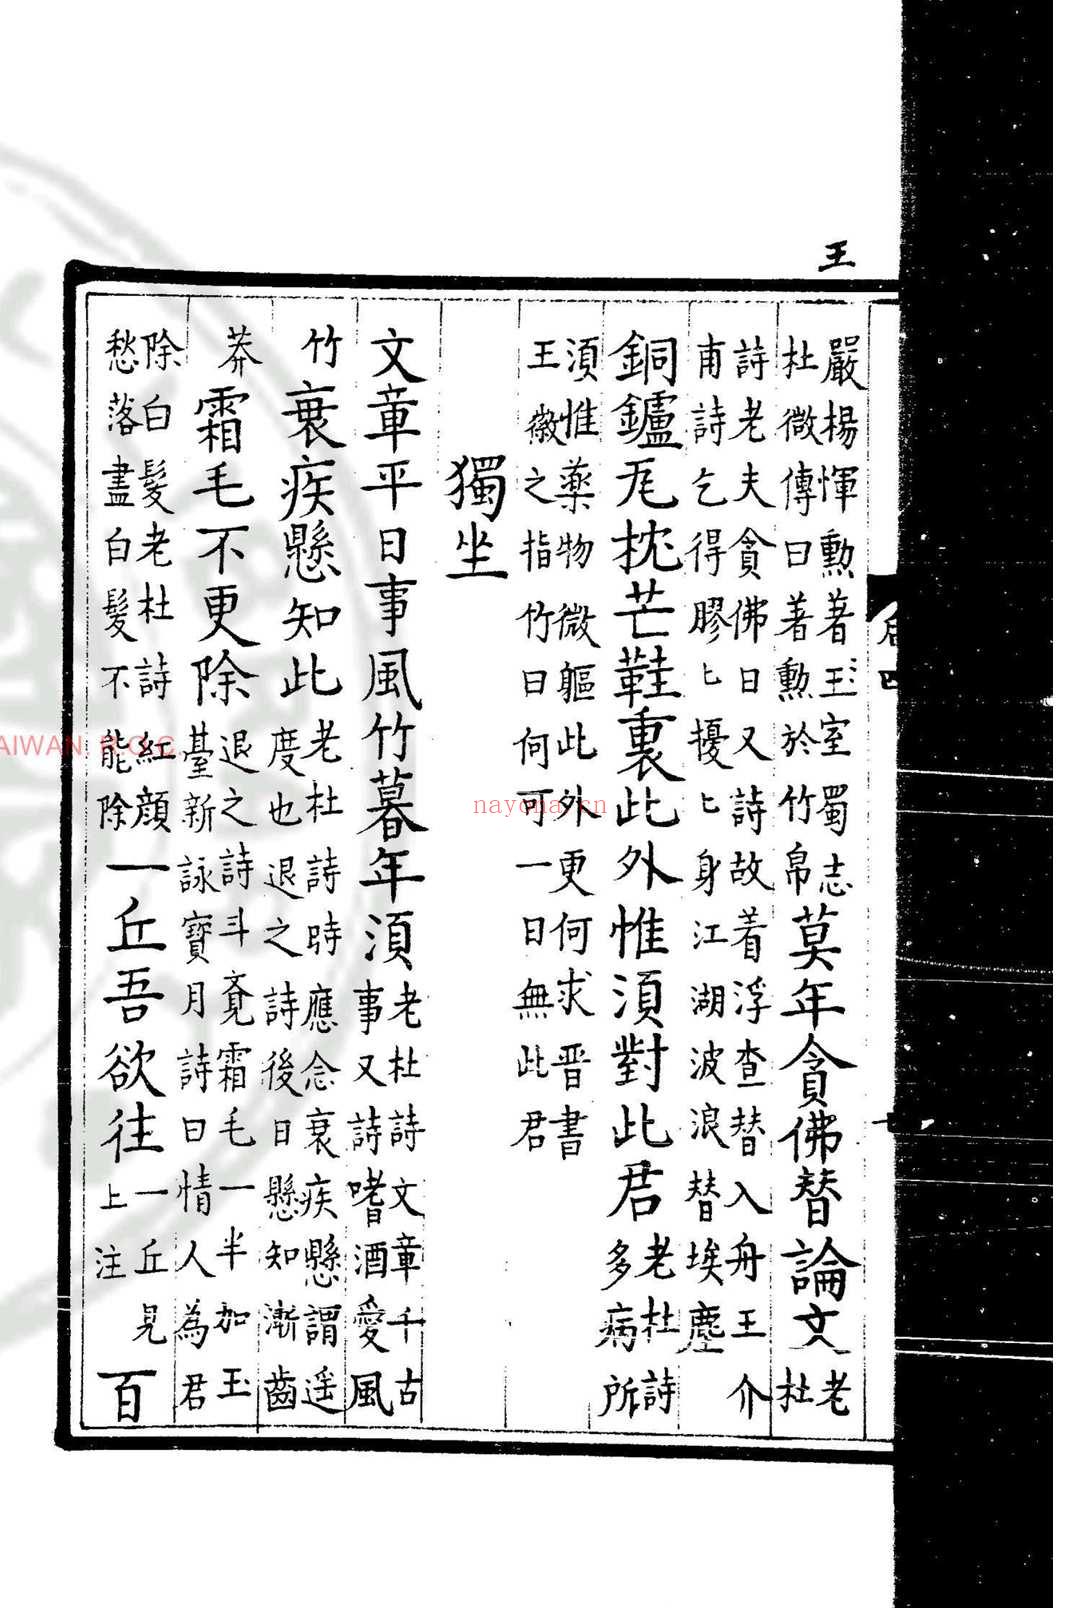 王
嚴楊惲勳著王室蜀志
杜微傳曰著勳於竹帛莫年貪佛替論文老
杜
詩老夫貪佛日又詩故着浮查替入舟王介
甫詩乞得膠匕擾匕身江湖波浪替埃塵
銅鑪瓦枕芒鞋裏此外惟須對此君老杜詩
多病所
須惟藥物微軀此外更何求晋書
王徽之指竹曰何可一日無此君
獨坐
文章平日事風竹暮年須老杜詩文章千古
事又詩嗜酒愛風
竹衰疾懸知此老杜詩時應念衰疾懸謂遥
度也退之詩後日懸知漸齒
莽霜毛不更除退之詩斗覔霜毛一半加玉
臺新詠寶月詩曰情人為君
除白髮老杜詩紅顔
愁落盡白髮不能除一丘吾欲往一丘見
上注百
AIWAN, R.O.C.
nayona.cn